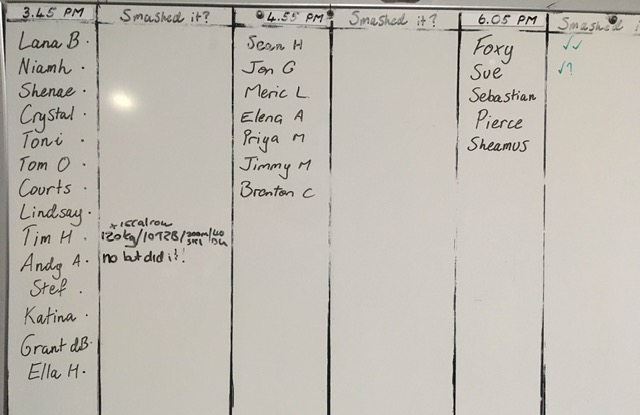 3.45 PM
Smashed it?
Lana B.
Niamh.
Shenae.
Crystal.
Toni.
Tom O.
Courts.
Lindsay.
Tim H.
120kg/
Andy A.
no but did it!
Stef.
Katina.
Grant dB.
Ella H.
4.55 PM
Smashed it?
Sean H
Jon G
Meric L
Elena A
Priya M
Jimmy M
Brenton C
6.05 PM
Smashed i
Foxy ✓✓
Sue ✓?
Sebastian
Pierce
Sheamus